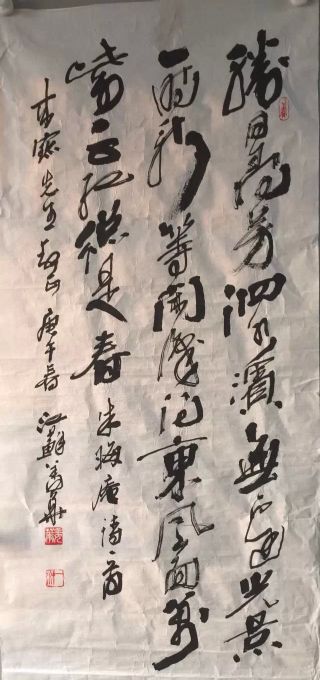 勝日尋芳泗水濱無邊光景
一時新等閒識得東風面萬
紫千紅總是春 朱晦庵詩一首
先生 正 庚午春 江蘇